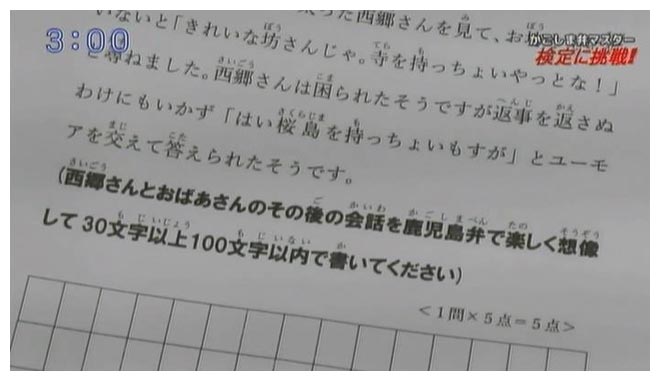 3:00
かごしま弁マスター
検定に挑戦!!
った西郷さんを見て、お
いないと「きれいな坊さんじゃ。寺を持っちょいやっとな！」
と尋ねました。西郷さんは困られたそうですが返事を返さぬ
わけにもいかず「はい桜島を持っちょいもすが」とユーモ
アを交えて答えられたそうです。
(西郷さんとおばあさんのその後の会話を鹿児島弁で楽しく想像
して30文字以上100文字以内で書いてください)
＜1問×5点＝5点＞